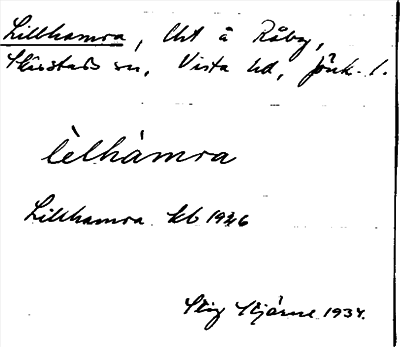 Lillhamra, lht å Råby,
Skärstads sn, Vista hd, Jönk. l.
lèlhàmra
Lillhamra kb 1926
Stig Stjärne 1934.